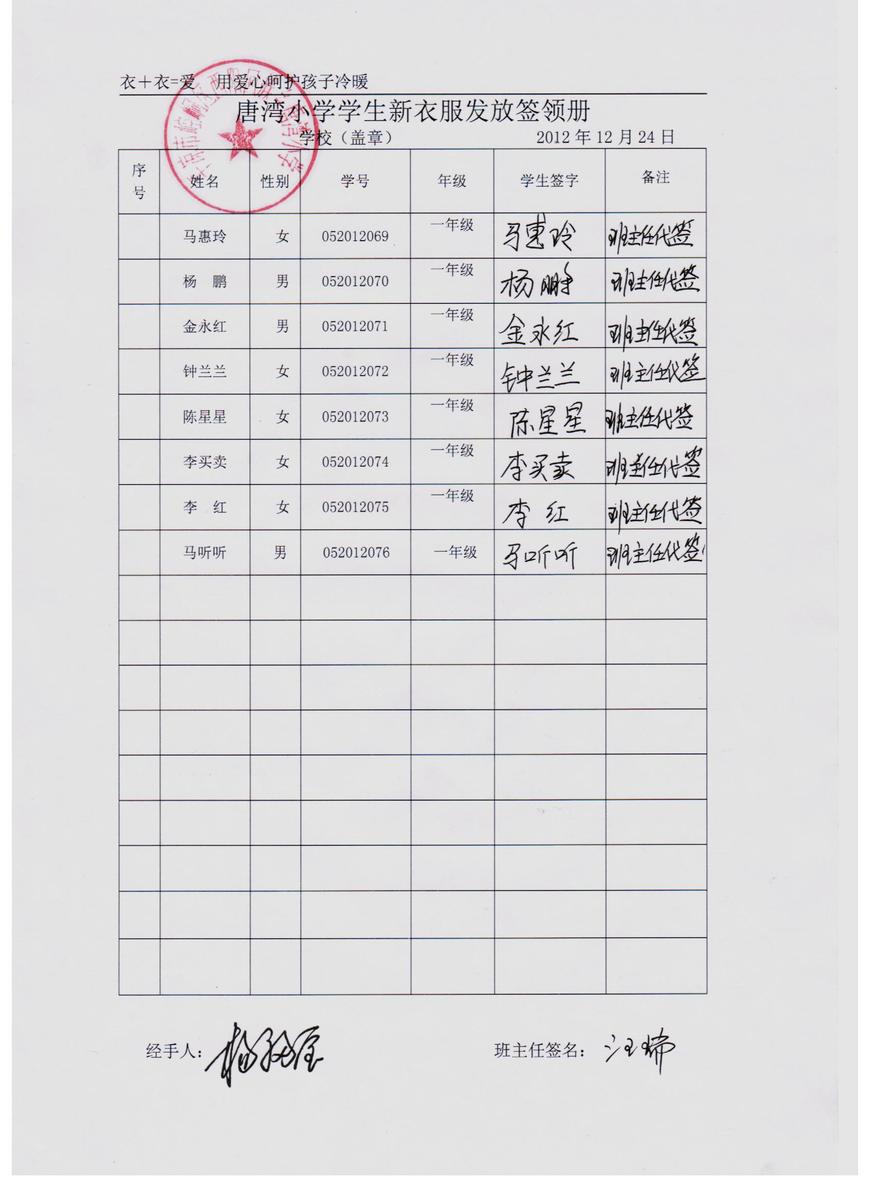 衣＋衣=爱　用爱心呵护孩子冷暖
唐湾小学学生新衣服发放签领册
学校（盖章）　2012 年 12 月 24 日
序号　姓名　性别　学号　年级　学生签字　备注
马惠玲　女　052012069　一年级　马惠玲　班主任代签
杨　鹏　男　052012070　一年级　杨鹏　班主任代签
金永红　男　052012071　一年级　金永红　班主任代签
钟兰兰　女　052012072　一年级　钟兰兰　班主任代签
陈星星　女　052012073　一年级　陈星星　班主任代签
李买卖　女　052012074　一年级　李买卖　班主任代签
李　红　女　052012075　一年级　李　红　班主任代签
马听听　男　052012076　一年级　马听听　班主任代签
经手人：　班主任签名：汪瑞